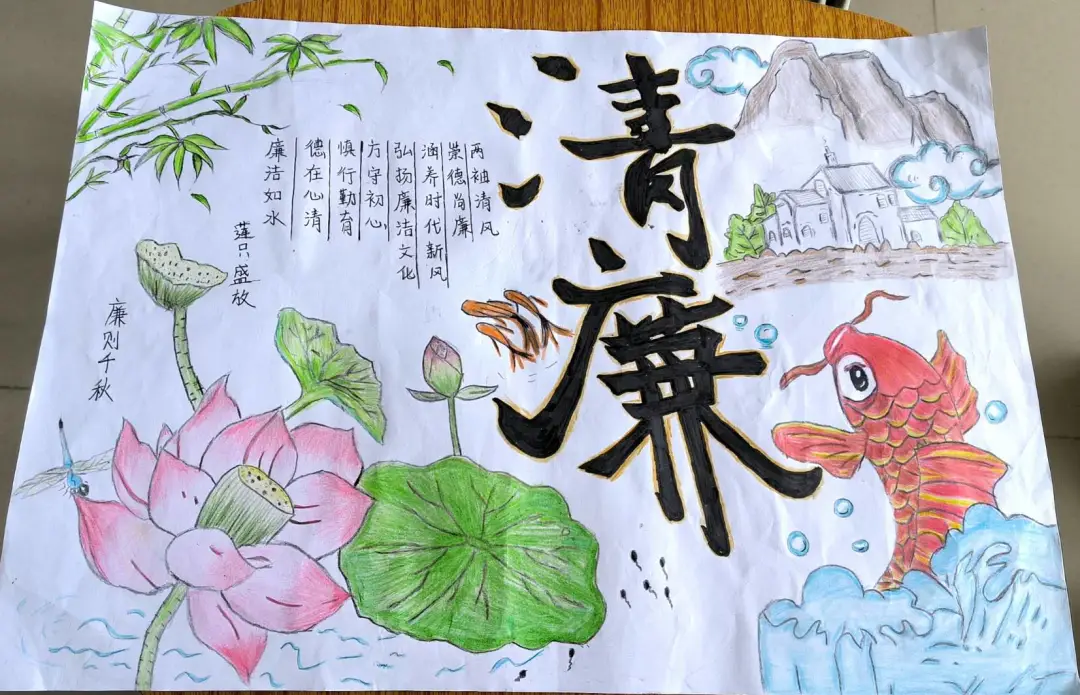 清廉
两袖清风
崇德尚廉
涵养时代新风
弘扬廉洁文化
方守初心
慎行勤育
德在心清
廉洁如水
莲只盛放
廉则千秋